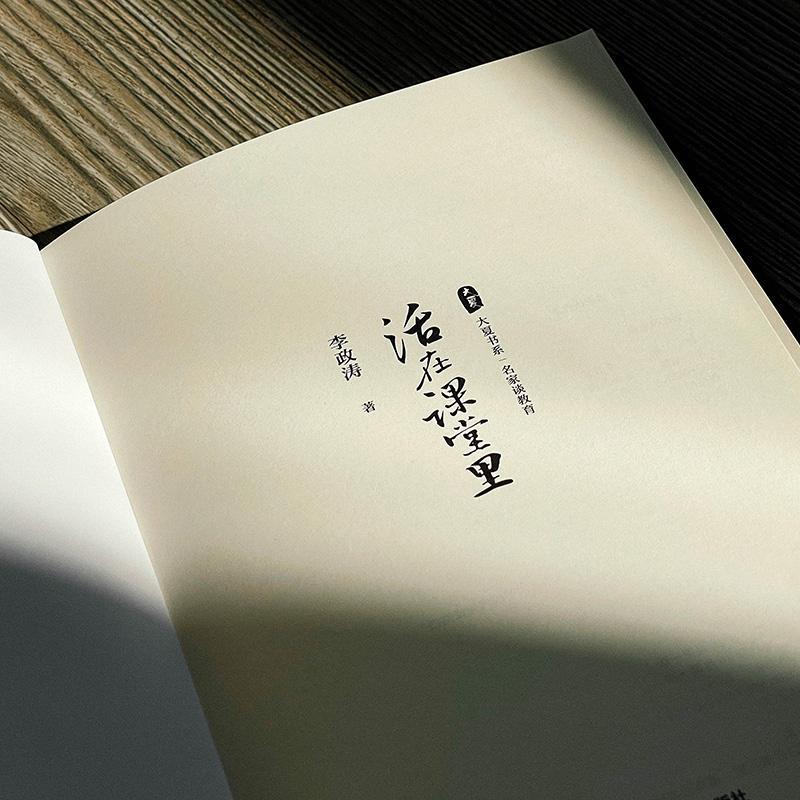 大夏
大夏书系|名家谈教育
活在课堂里
李政涛 著